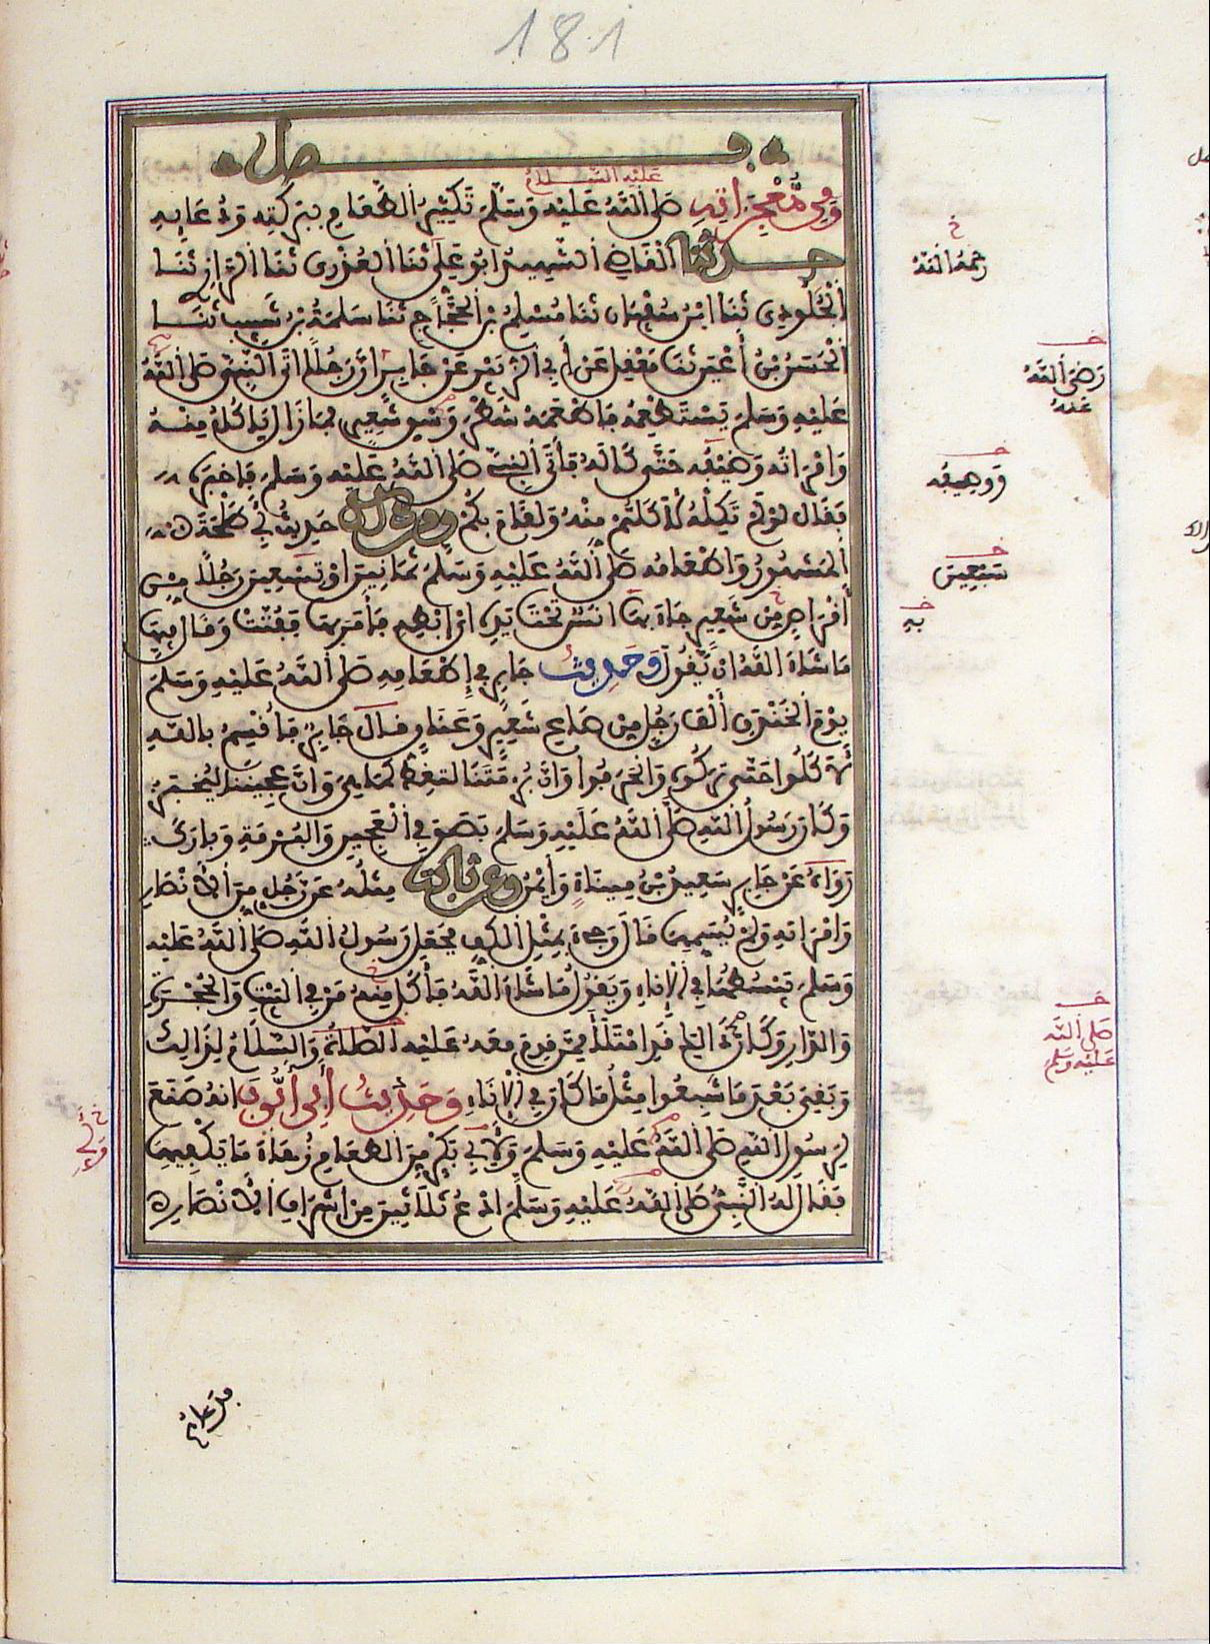 181
فصل
عليه السلام
ومن معجزاته صلى الله عليه وسلم تكثير الطعام ببركته ودعايه
حدثنا القاضي الشهيد ابو علي ثنا العذري ثنا الرازي ثنا
الجلودي ثنا ابن سفيان ثنا مسلم بن الحجاج ثنا سلمة بن شبيب ثنا
الحسن بن أعين ثنا معقل عن أبي الزبير عن جابر ان رجلا اتى النبي صلى الله
عليه وسلم يستطعمه فاطعمه شطر وسق شعير فما زال ياكل منه
وامراته وضيفه حتى كاله فأتى النبي صلى الله عليه وسلم فاخبره
فقال لو لم تكله لأكلتم منه ولقام بكم ومن ذلك حديث أبي طلحة
المشهور واطعامه صلى الله عليه وسلم ثمانين او تسعين رجلا من
أقراص من شعير جاء بها انس تحت يده اي ابطه فأمر بها ففتت وقال فيها
ما شاء الله ان يقول وحديث جابر في إطعامه صلى الله عليه وسلم
يوم الخندق ألف رجل من صاع شعير وعناق وقال جابر فأقسم بالله
لأكلوا حتى تركوه وانحرفوا وان برمتنا لتغط كما هي وان عجيننا ليخبز
وكان رسول الله صلى الله عليه وسلم بصق في العجين والبرمة وبارك
رواه عن جابر سعيد بن ميناء وأيمن وعن ثابت مثله عن رجل من الأنصار
وامراته ولم يسمهما قال وجيء بمثل الكف فجعل رسول الله صلى الله عليه
وسلم يبسطها في الإناء ويقول ما شاء الله فأكل منه من في البيت والحجرة
والدار وكان ذلك قد امتلأ ممن قدم معه عليه الصلاة والسلام لذلك
وبقي بعد ما شبعوا مثل ما كان في الإناء وحديث أبي أيوب انه صنع
لرسول الله صلى الله عليه وسلم ولأبي بكر من الطعام زهاء ما يكفيهما
فقال له النبي صلى الله عليه وسلم ادع ثلاثين من اشراف الأنصار
خ
رحمه الله
خ
رضي الله
عنه
خ
ووصيفه
خ
سبعين
خ
خ
صلى الله
عليه وسلم
خ
فدعاهم